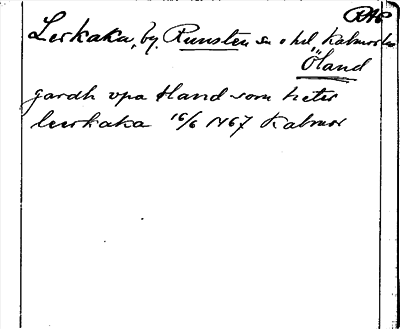 RAP
Lerkaka, by, Runsten sn o hd Kalmar län
Öland
gardh vpa Øland som heter
leerkaka 16/6 1467 Kalmar